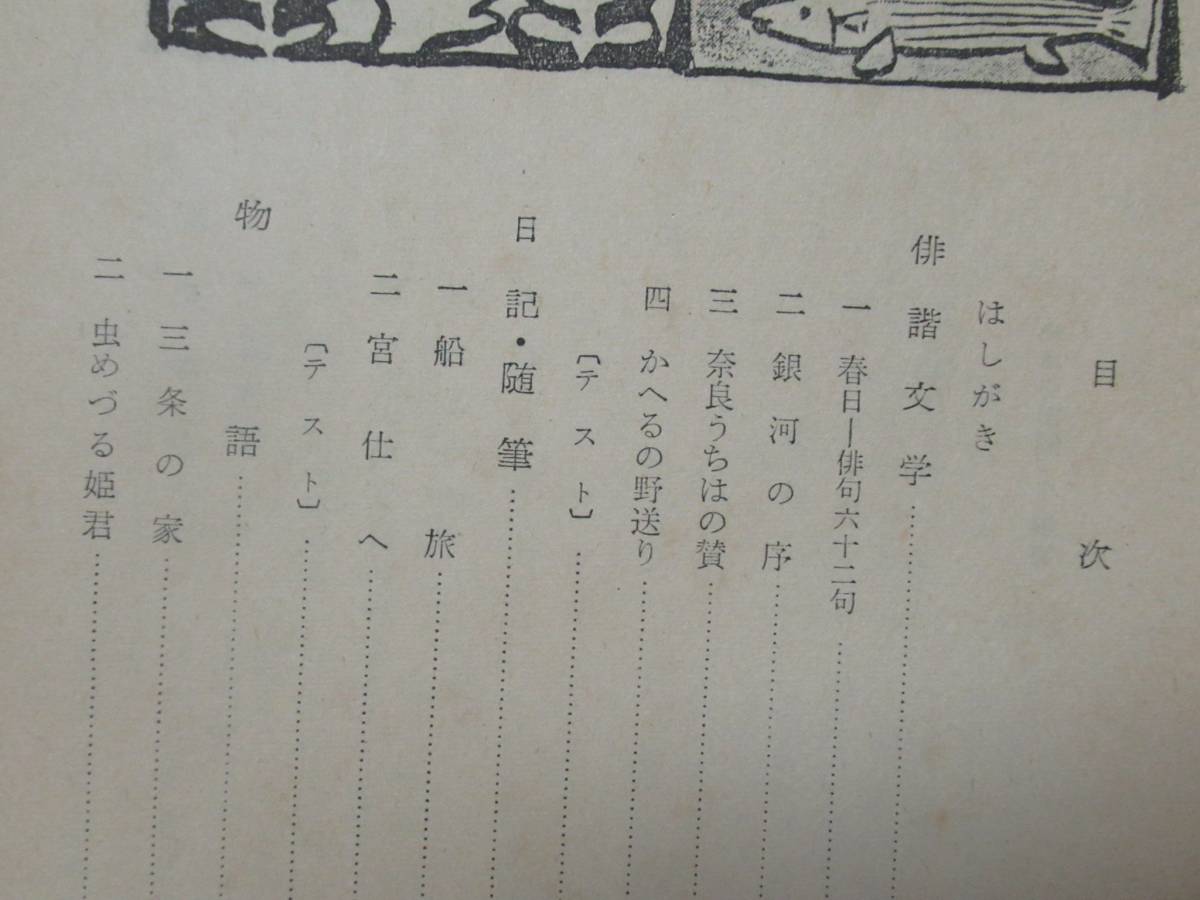 目次
はしがき
俳諧文学
一 春日―俳句六十二句
二 銀河の序
三 奈良うちはの賛
四 かへるの野送り
〔テスト〕
日記・随筆
一 船旅
二 宮仕へ
〔テスト〕
物語
一 三条の家
二 虫めづる姫君